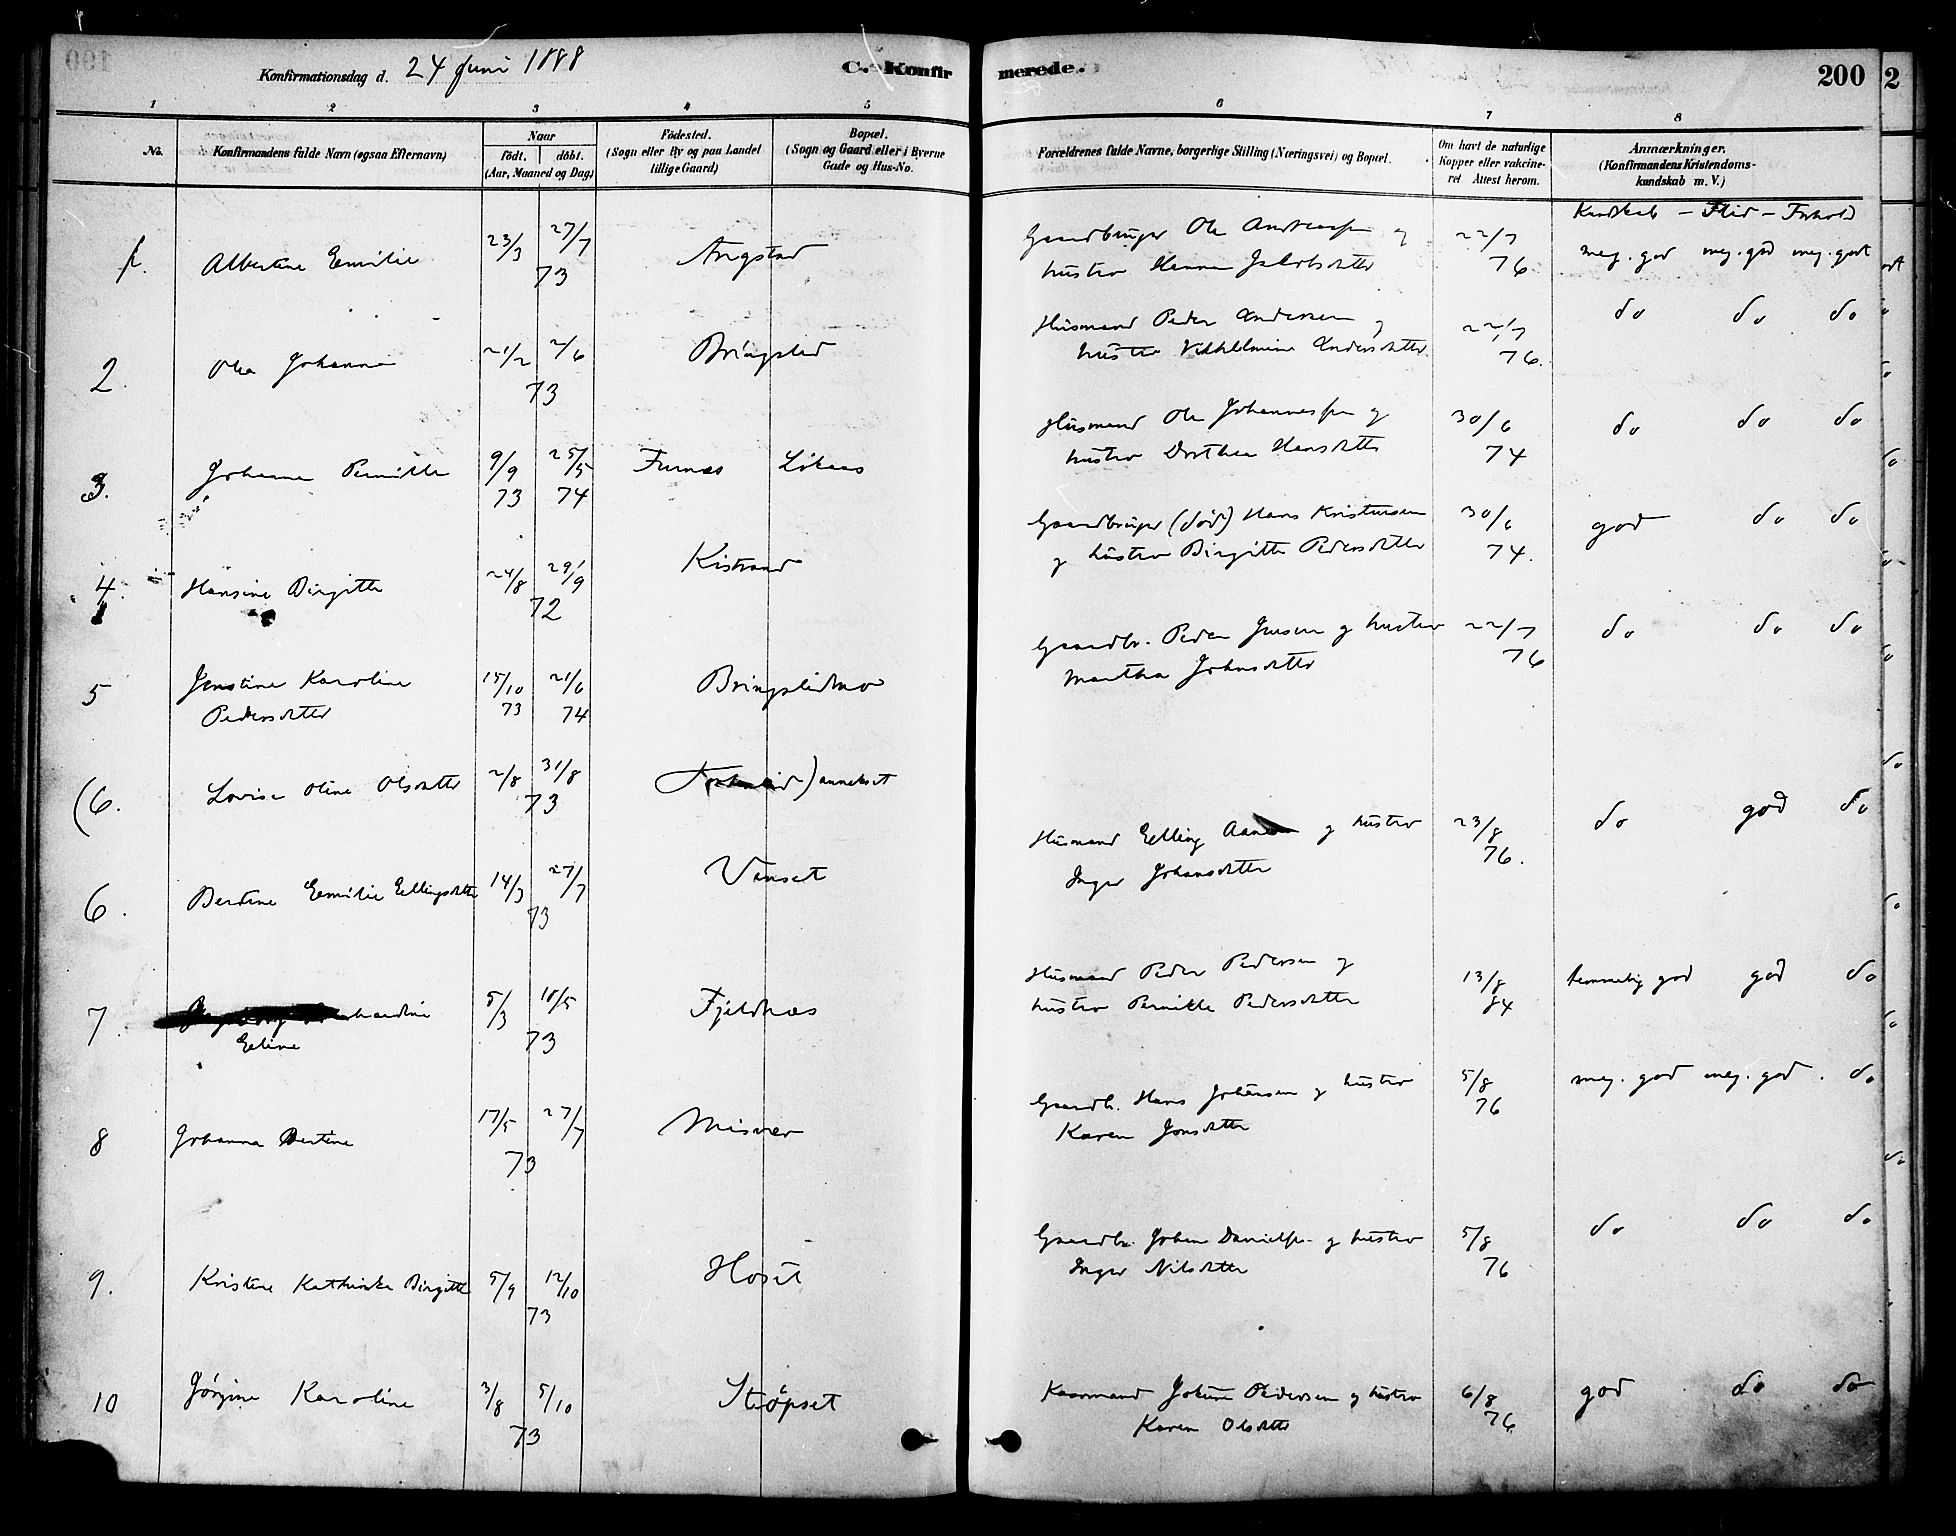 Konfirmationsdag d. 24 Juni 1888
C. Konfirmerede.
200
2
1 2 3 4 5 6 7 8
No.
Konfirmandens fulde Navn (ogsaa Efternavn)
Naar
födt. döbt.
(Aar, Maaned og Dag)
Födested.
(Sogn eller By og paa Landet
tillige Gaard)
Bopæl.
(Sogn og Gaard eller i Byerne
Gade og Hus-No.
Forældrenes fulde Navne, borgerlige Stilling (Næringsvei) og Bopæl.
Om havt de naturlige
Kopper eller vakcine-
ret Attest herom.
Anmærkninger.
(Konfirmandens Kristendoms-
kundskab m. V.)
Kundskab – Flid – Forhold
1. Albertine Emilie 23/3 27/7 73
Gaardbruger Ole Andreassen og
hustro Hanna Jakobsdatter
22/7 76
meg. god meg. god meg. godt
2. Olea Johanna 21/2 2/6 73 Bringslid
Husmand Peder Andersen og
hustro Vilhelmine Andersdatter
22/7 76.
do do do
3. Johanna Pernille 9/9 73 25/5 74 Furnes
Husmand Ole Johannessen og
hustro Dorthea Hansdatter
30/6 74
do do do
4. Hansine Birgitte 24/8 29/9 72 Kistrand
Gaardbruger (död) Hans Kristensen
og hustro Birgitte Pedersdatter
30/6 74.
god do do
5 Jenstine Karoline
Pedersdatter
15/10 73 21/6 74 Bringslidmo
Gaardbr. Peder Jensen og hustro
Martha Johnsdatter
22/7 76
do do do
(6. Lovise Oline Olsdatter 2/8 31/8 73 ) annekset
6. Berdine Emilie Ellingsdatter 14/3 27/7 73 Vanset
Husmand Elling og hustro
Inger Johansdatter
23/8 76.
do god do
7. Eline
5/3 18/5 73 Fjeldnæs
Husmand Peder Pedersen og
hustro Pernille Pedersdatter
13/8 84
temmelig god god do
8 Johanna Bertine 17/5 27/7 73 Misvær
Gaardb. Hans Johansen og hustro
Karen Jonsdatter
5/8 76
meg. god meg. god. do
9. Kristine Kathinka Birgitte 5/9 12/10 73 Hoset
Gaardbr. Johan Danielsen og hustro
Inger Nilsdatter
5/8 76
do do do
10 Jörgine Karoline 3/8 5/10 73 Ströpset
Kaarmand Johan Pedersen og hustro
Karen Olsdatter
6/8 76.
god do do